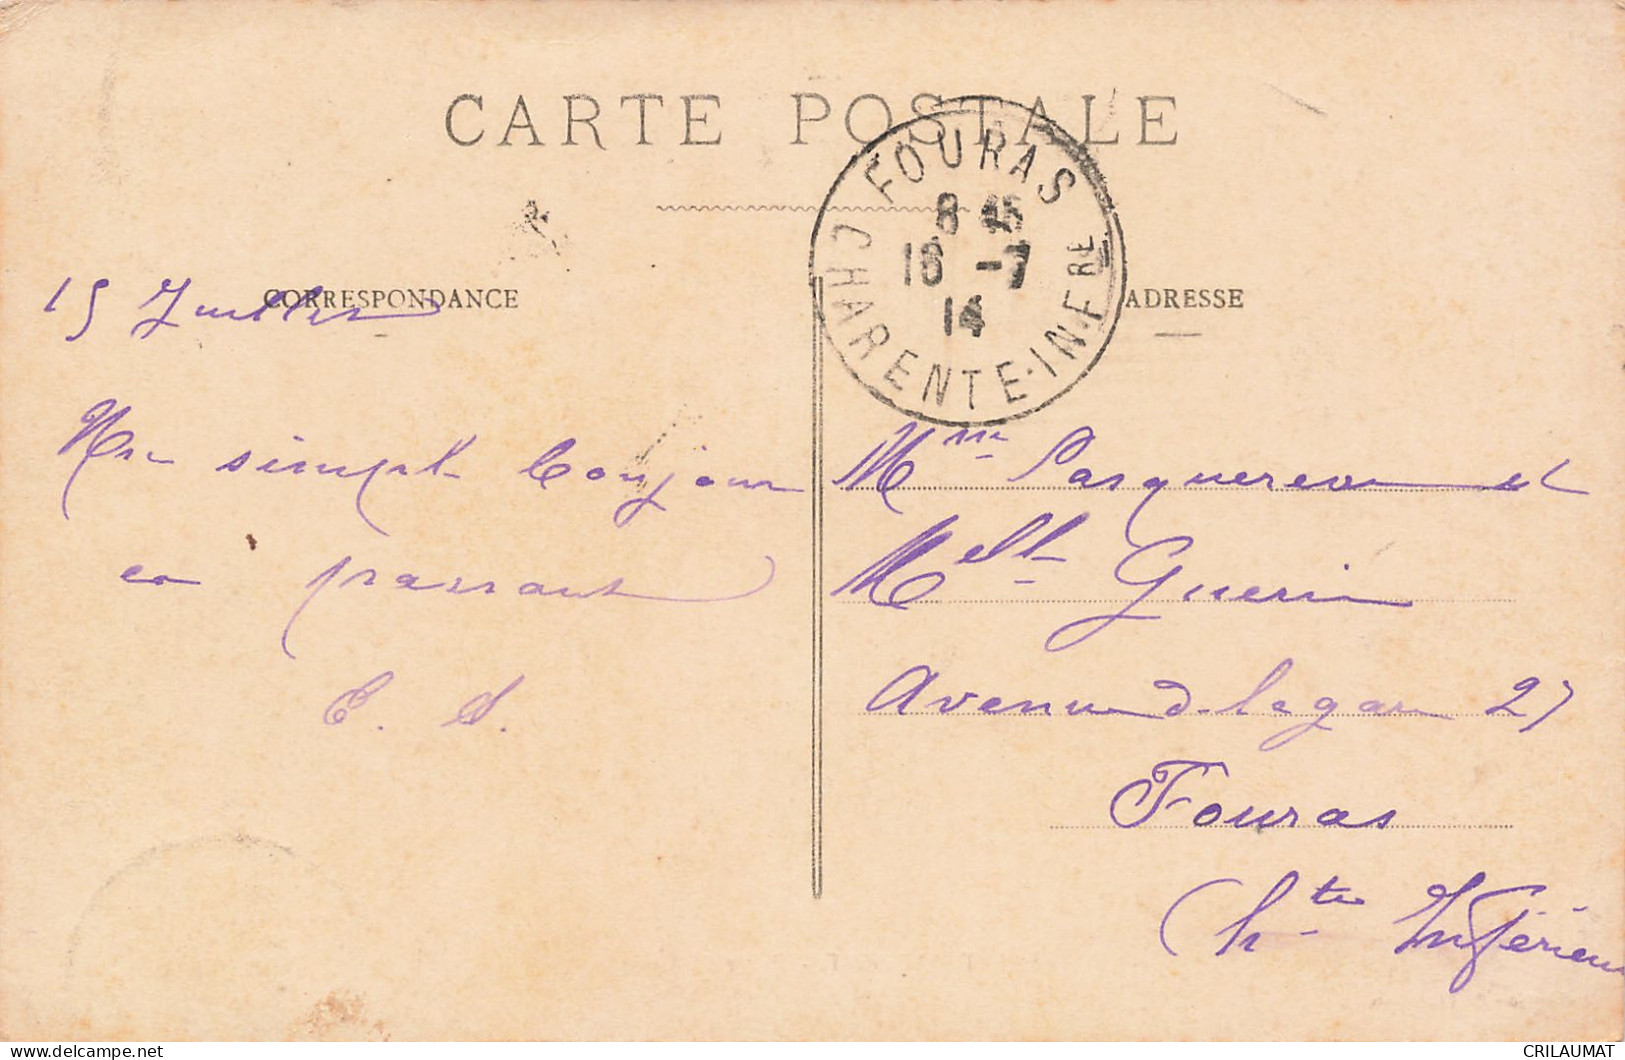 CARTE POSTALE
FOURAS
8 45
16 -7
14
CHARENTE·INF RE
CORRESPONDANCE
ADRESSE
15 Juillet
Un simple bonjour
en passant
E. S.
Mme Pasquereau et
Melle Guerin
Avenue de la gare 27
Fouras
Chte Inférieure
delcampe.net
CRILAUMAT